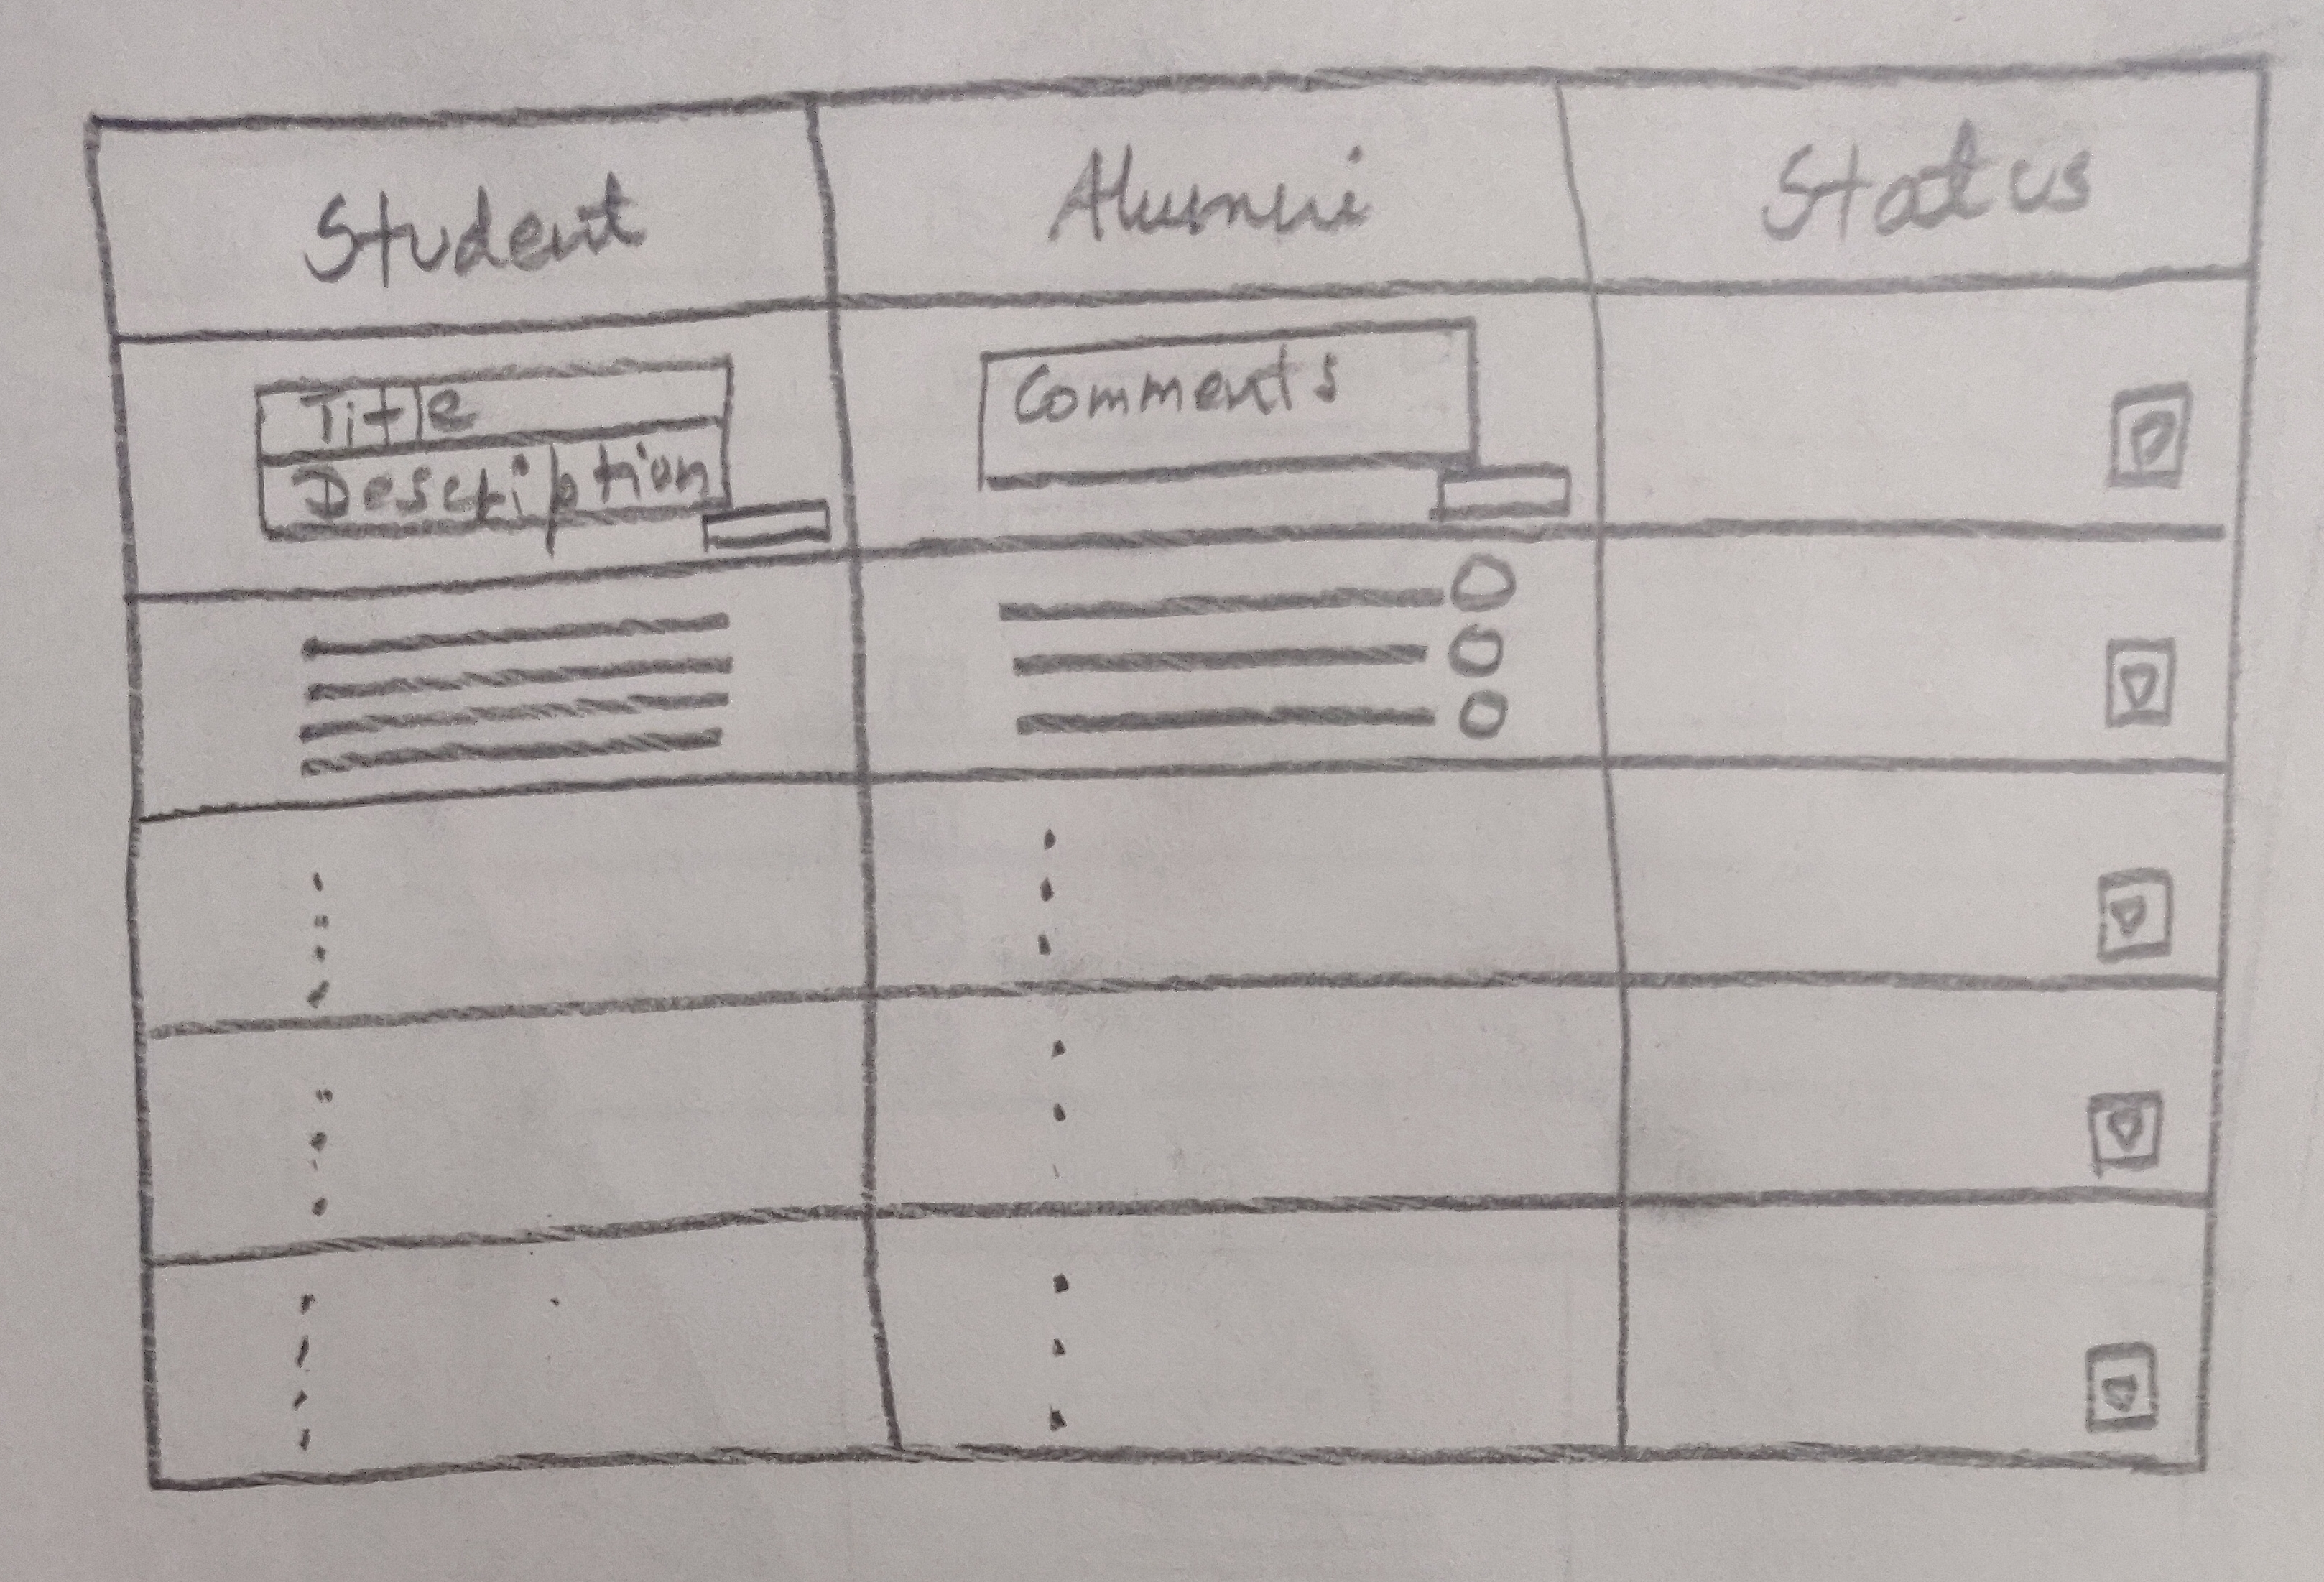 Student Alumni Status
Title
Description
Comments